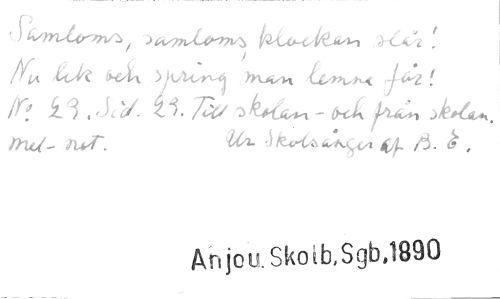 Samloms, samloms, klockan slår!
Nu lek och spring man lemna får!
No 29. Sid. 29. Till skolan - och från skolan.
mel- not. Ur Skolsånger af B. E.
Anjou. Skolb, Sgb, 1890